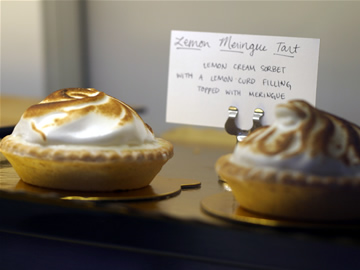 Lemon Meringue Tart
LEMON CREAM SORBET
WITH A LEMON CURD FILLING
TOPPED WITH MERINGUE